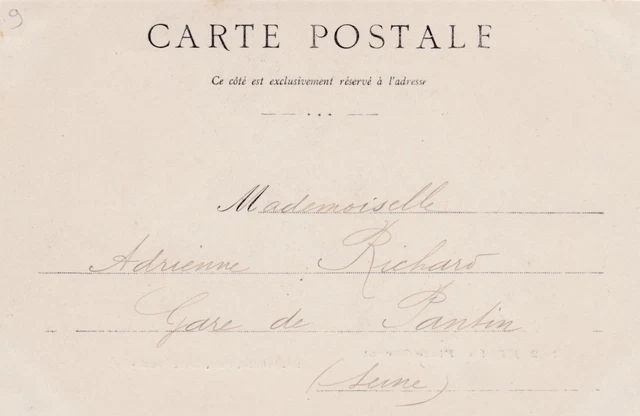 9
CARTE POSTALE
Ce côté est exclusivement réservé à l'adresse
Mademoiselle
Adrienne Richard
Gare de Pantin
(Seine)